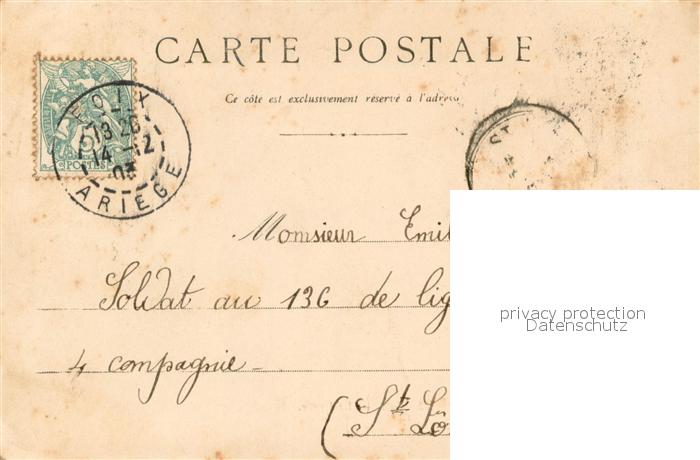 CARTE POSTALE
Ce côté est exclusivement réservé à l'adres
FOIX
13 26
14 -12
03
ARIÈGE
POSTES
ST
Monsieur Emil
Soldat au 136 de lig
4 compagnie
(St Lo
privacy protection
Datenschutz